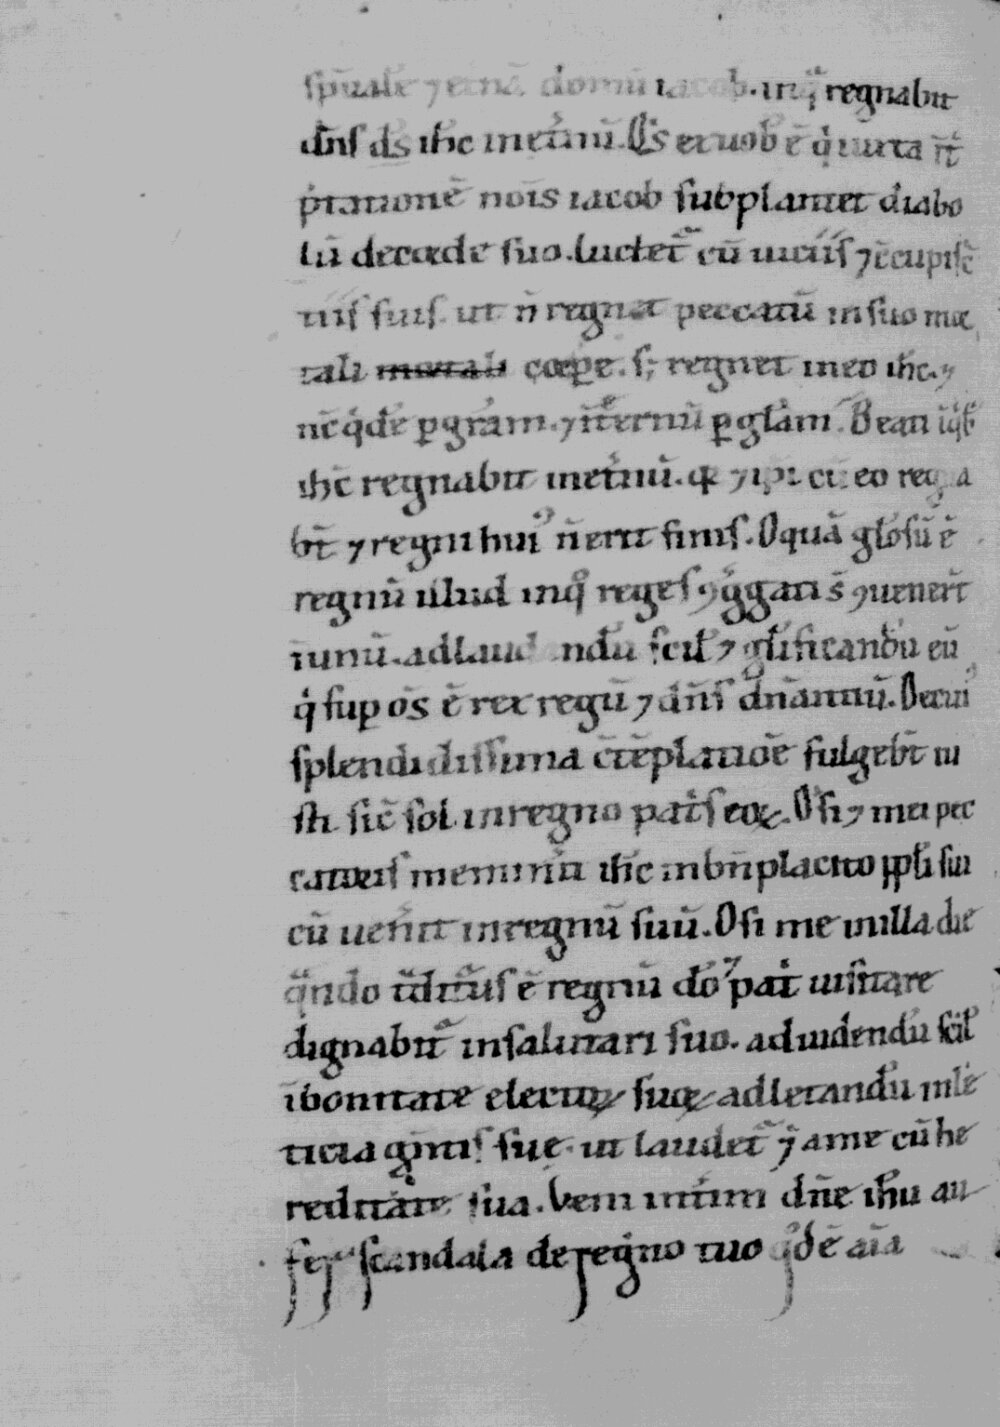 sp̄uale ⁊ et̄nā domū iacob. in q̄ regnabit
dn̄s ds̄ ih̄c inet̄nū. Qi̾s ex uob̾ ē q̇ iuxta īt̄
p̄tationē nois̄ iacob subplantet diabo
lū de corde suo. luctet̄ cū uiciis ⁊ c̄cupisc̄
tiis suis. ut n̄ regnet peccatū in suo mor
tali mortali corpe. s; regnet in eo ih̄c. ⁊
nc̄ q̇de p̱ gr̄am. ⁊ īt̄ernū p̱ gl̄am. Beati ī q̇b̾
ih̄c regnabit inet̄nū. q̄ ⁊ ip̄i cū eo regna
bt̄ ⁊ regni hui̾ n̄ erit finis. O quā gl̄osū ē
regnū illud in q̊ reges ꝯg̾gati s̄ ꝯuener̄t
ī unū. ad laudandū scil̾ ⁊ gl̄ificandū eū
q̇ sup̱ os̄ ē rex regū ⁊ dn̄s dn̄antiū. De cui̾
splendidissima c̄tēplatiōe fulgebt̄ iu
sti sic̄ sol in regno pat̾s eoꝝ. O si ⁊ mei pec
catoris memin̾it ih̄c in bn̄placito pp̄li sui
cū uen̾it in regnū suū. O si me in illa die
q̄ndo t̄dit̾us ē regnū dō ⁊ pat̾i uisitare
dignabit̄ in salutari suo. ad uidendū scil̾
ī bonitate electoꝝ suoꝝ ad letandū in le
ticia gn̄tis sue. ut laudet̄ ⁊ a me cū he
reditate sua. Veni int̾im dn̄e ih̄u au
fer scandala de regno tuo q̾d ē aīa